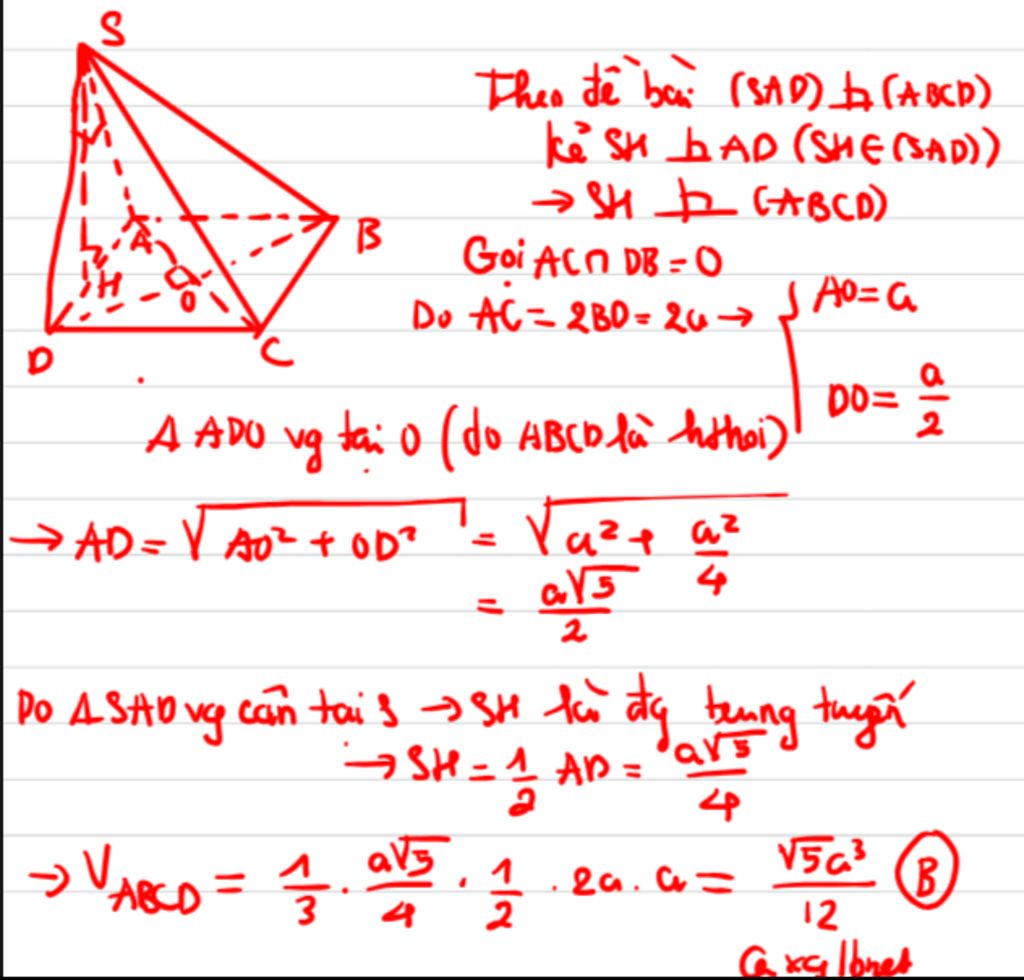 S
B
A
H
O
D
C
Theo đề bài (SAD) ⊥ (ABCD)
kẻ SH ⊥ AD (SH ∈ (SAD))
→ SH ⊥ (ABCD)
Gọi AC ∩ DB = O
Do AC = 2BD = 2a → { AO = a
DO = a/2
Δ ADO vg tại O (do ABCD là hthoi)
→ AD = √(AO² + OD²) = √(a² + a²/4)
= a√5/2
Do Δ SAD vg cân tại S → SH là đg trung tuyến
→ SH = 1/2 AD = a√5/4
→ V_ABCD = 1/3 . a√5/4 . 1/2 . 2a . a = √5a³/12 (B)